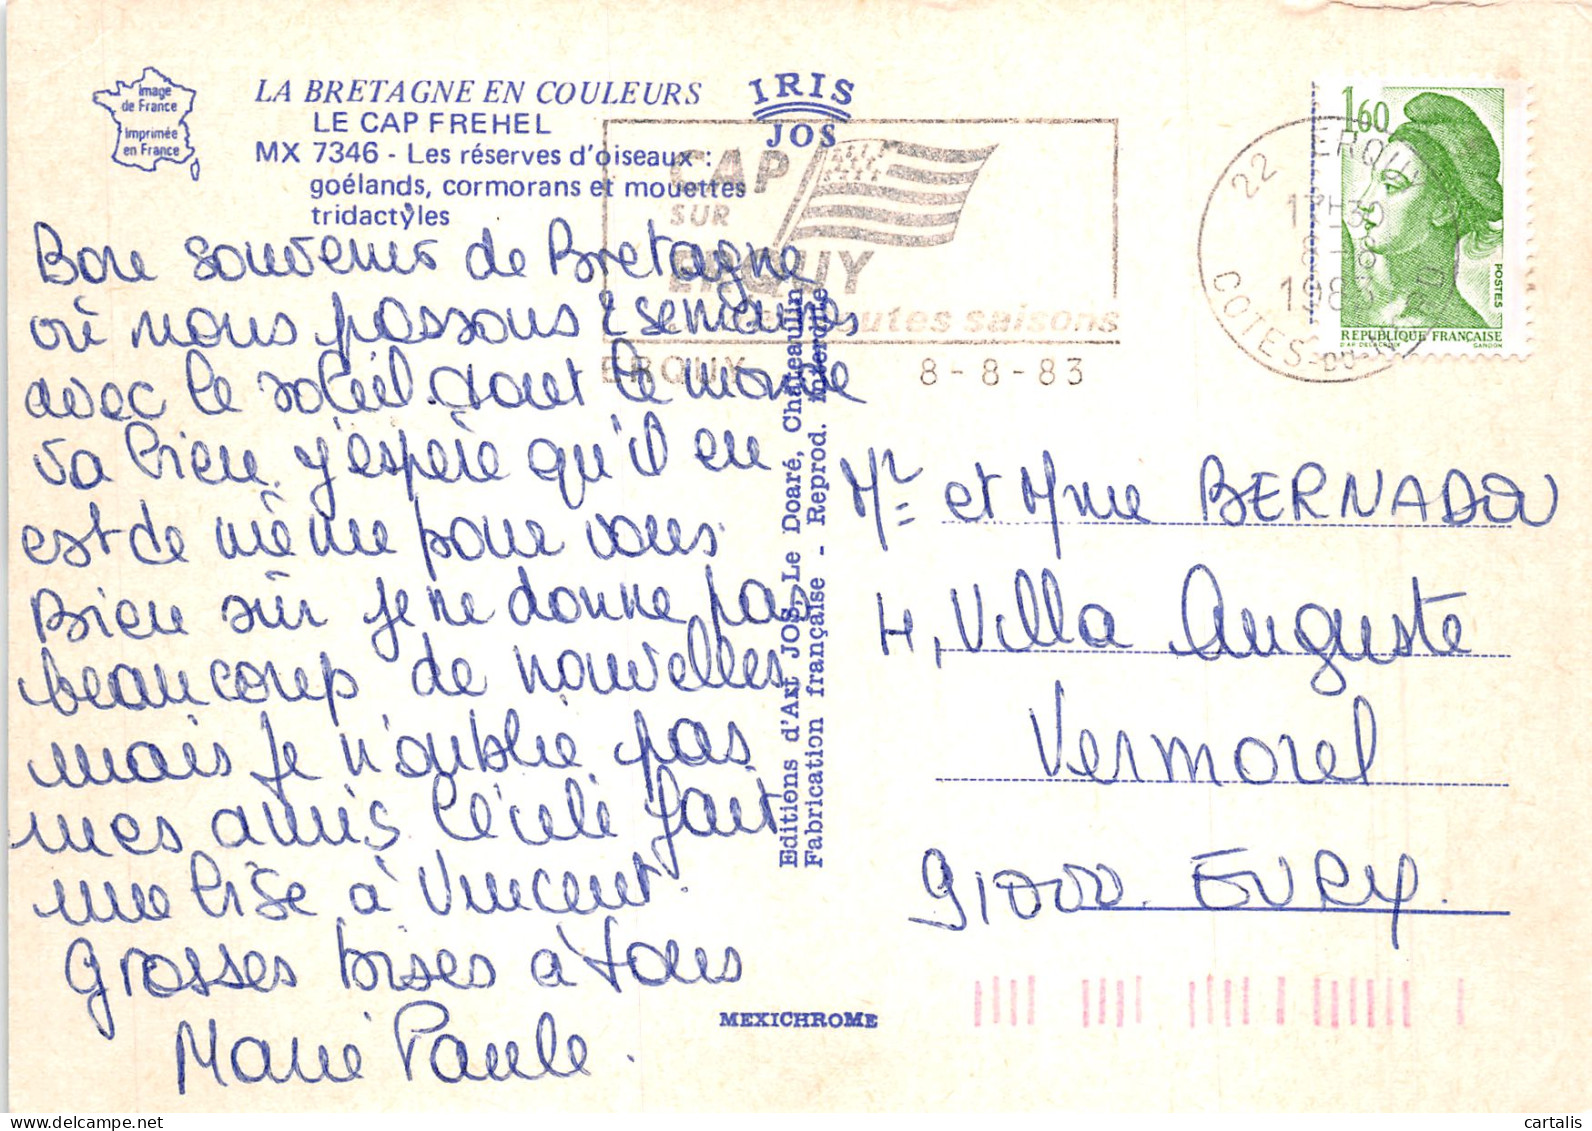 Image
de France
Imprimée
en France
LA BRETAGNE EN COULEURS
LE CAP FREHEL
MX 7346 - Les réserves d'oiseaux :
goélands, cormorans et mouettes
tridactyles
IRIS
JOS
CAP
SUR
ERQUY
toutes saisons
ERQUY 8-8-83
22 ERQUY
17H30
8-8
1983
COTES-DU-NORD
1,60
POSTES
REPUBLIQUE FRANÇAISE
D'AP DELACROIX GANDON
Bon souvenir de Bretagne
où nous passons 2 semaines
avec le soleil. tout le monde
va bien. j'espère qu'il en
est de même pour vous.
Bien sûr je ne donne pas
beaucoup de nouvelles
mais je n'oublie pas
mes amis. Cécile fait
une bise à Vincent.
Grosses bises à tous
Marie Paule.
Editions d'Art JOS, Le Doaré, Chateaulin
Fabrication française - Reprod. interdite
MEXICHROME
Mr et Mme BERNADOU
4, Villa Auguste
Vermorel
91000. EVRY.
cartalis